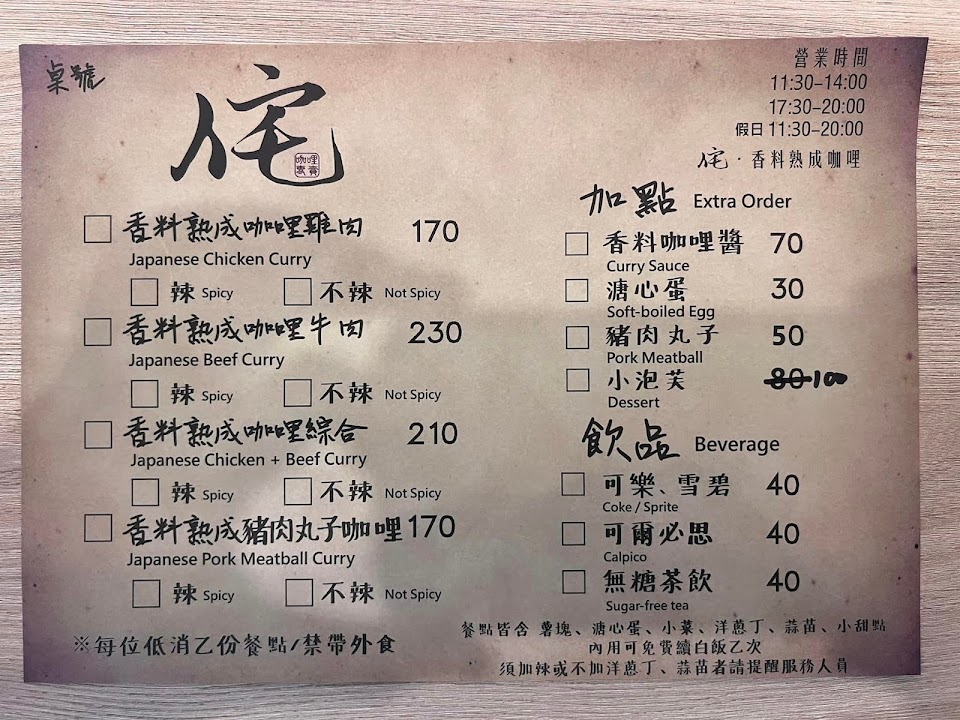 桌號
侘
咖哩
專賣
營業時間
11:30–14:00
17:30–20:00
假日 11:30–20:00
侘 · 香料熟成咖哩
香料熟成咖哩雞肉 170
Japanese Chicken Curry
辣 Spicy 不辣 Not Spicy
香料熟成咖哩牛肉 230
Japanese Beef Curry
辣 Spicy 不辣 Not Spicy
香料熟成咖哩綜合 210
Japanese Chicken + Beef Curry
辣 Spicy 不辣 Not Spicy
香料熟成豬肉丸子咖哩 170
Japanese Pork Meatball Curry
辣 Spicy 不辣 Not Spicy
※每位低消乙份餐點/禁帶外食
加點 Extra Order
香料咖哩醬 70
Curry Sauce
溏心蛋 30
Soft-boiled Egg
豬肉丸子 50
Pork Meatball
小泡芙 80 100
Dessert
飲品 Beverage
可樂、雪碧 40
Coke / Sprite
可爾必思 40
Calpico
無糖茶飲 40
Sugar-free tea
餐點皆含 薯塊、溏心蛋、小菜、洋蔥丁、蒜苗、小甜點
內用可免費續白飯乙次
須加辣或不加洋蔥丁、蒜苗者請提醒服務人員